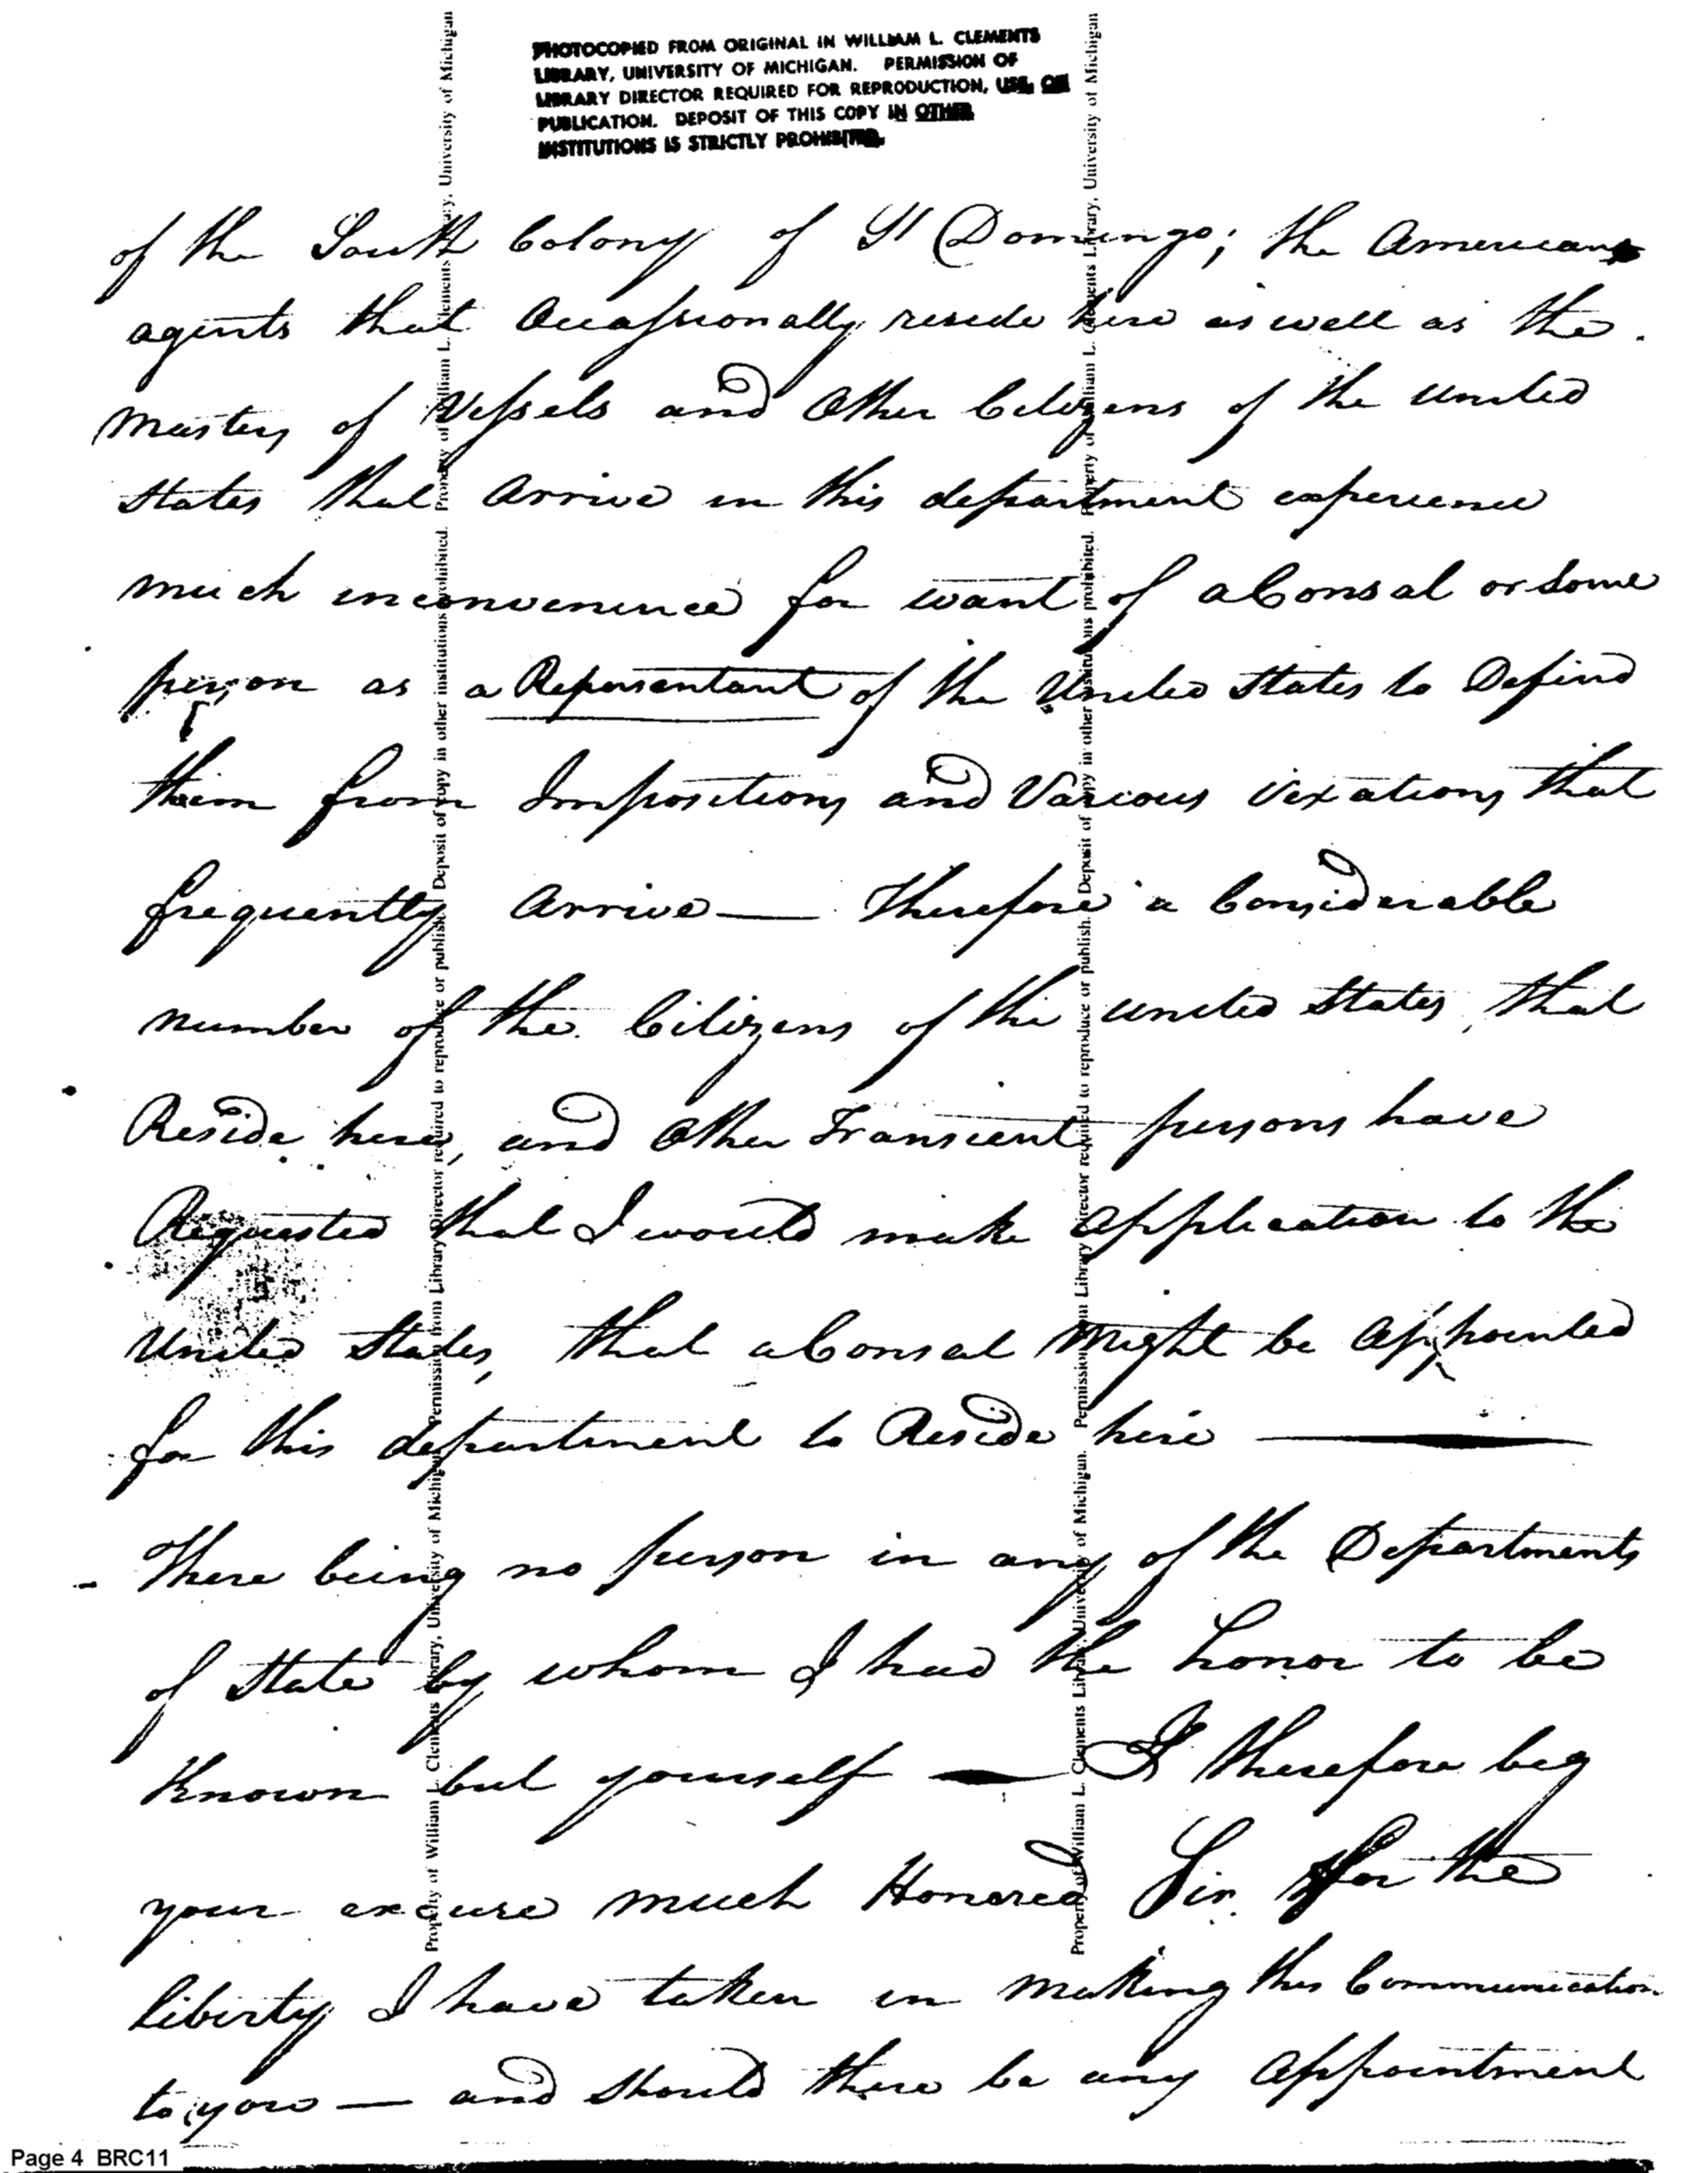 PHOTOCOPIED FROM ORIGINAL IN WILLIAM L. CLEMENTS
LIBRARY, UNIVERSITY OF MICHIGAN. PERMISSION OF
LIBRARY DIRECTOR REQUIRED FOR REPRODUCTION, USE, OR
PUBLICATION. DEPOSIT OF THIS COPY IN OTHER
INSTITUTIONS IS STRICTLY PROHIBITED.
of the South Colony of St Domingo; the Americans
agents that Occassionally reside here as well as the
Masters of Vessels and Other Citizens of the United
States that Arrive in this department experience
much inconvenience for want of a Consal or some
person as a Representant of the United States to Defend
them from Impositions and Various vexations that
frequently Arrive — Therefore a Considerable
number of the Citizens of the united States, that
Reside here, and Other Transient persons have
Requested that I would make application to the
United States, that a Consal Might be Appointed
for this department to Reside here —
There being no person in any of the Departments
of State by whom I had the honor to be
Known but yourself — I therefore beg
your excuse much Honored Sir for the
liberty I have taken in making this Communication
to you — and should there be any Appointment
Property of William L. Clements Library, University of Michigan. Permission from Library Director required to reproduce or publish. Deposit of copy in other institutions prohibited. Property of William L. Clements Library, University of Michigan
Property of William L. Clements Library, University of Michigan. Permission from Library Director required to reproduce or publish. Deposit of copy in other institutions prohibited. Property of William L. Clements Library, University of Michigan
Page 4 BRC11